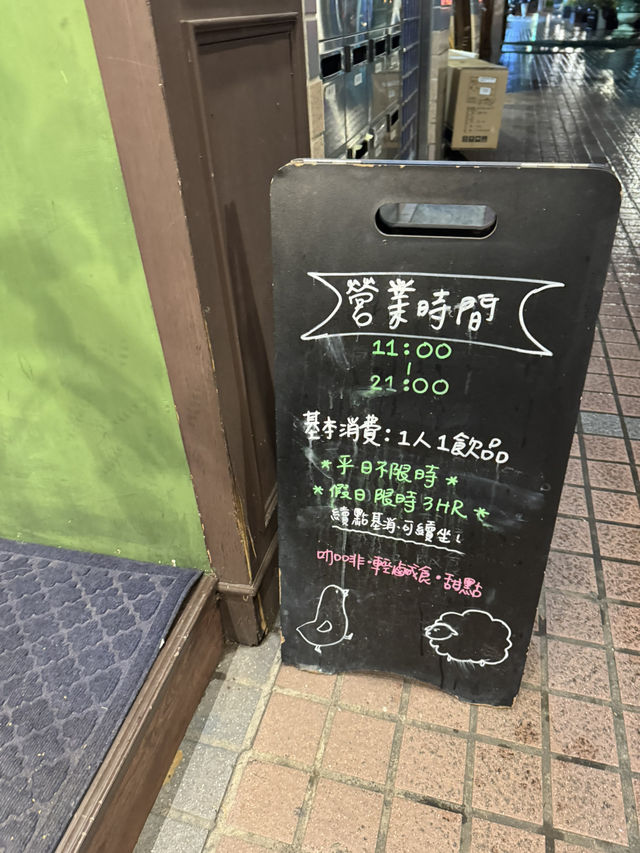 營業時間
11:00
|
21:00
基本消費：1人1飲品
*平日不限時*
*假日限時3HR*
續點基消可續坐！
咖啡·輕鹹食·甜點